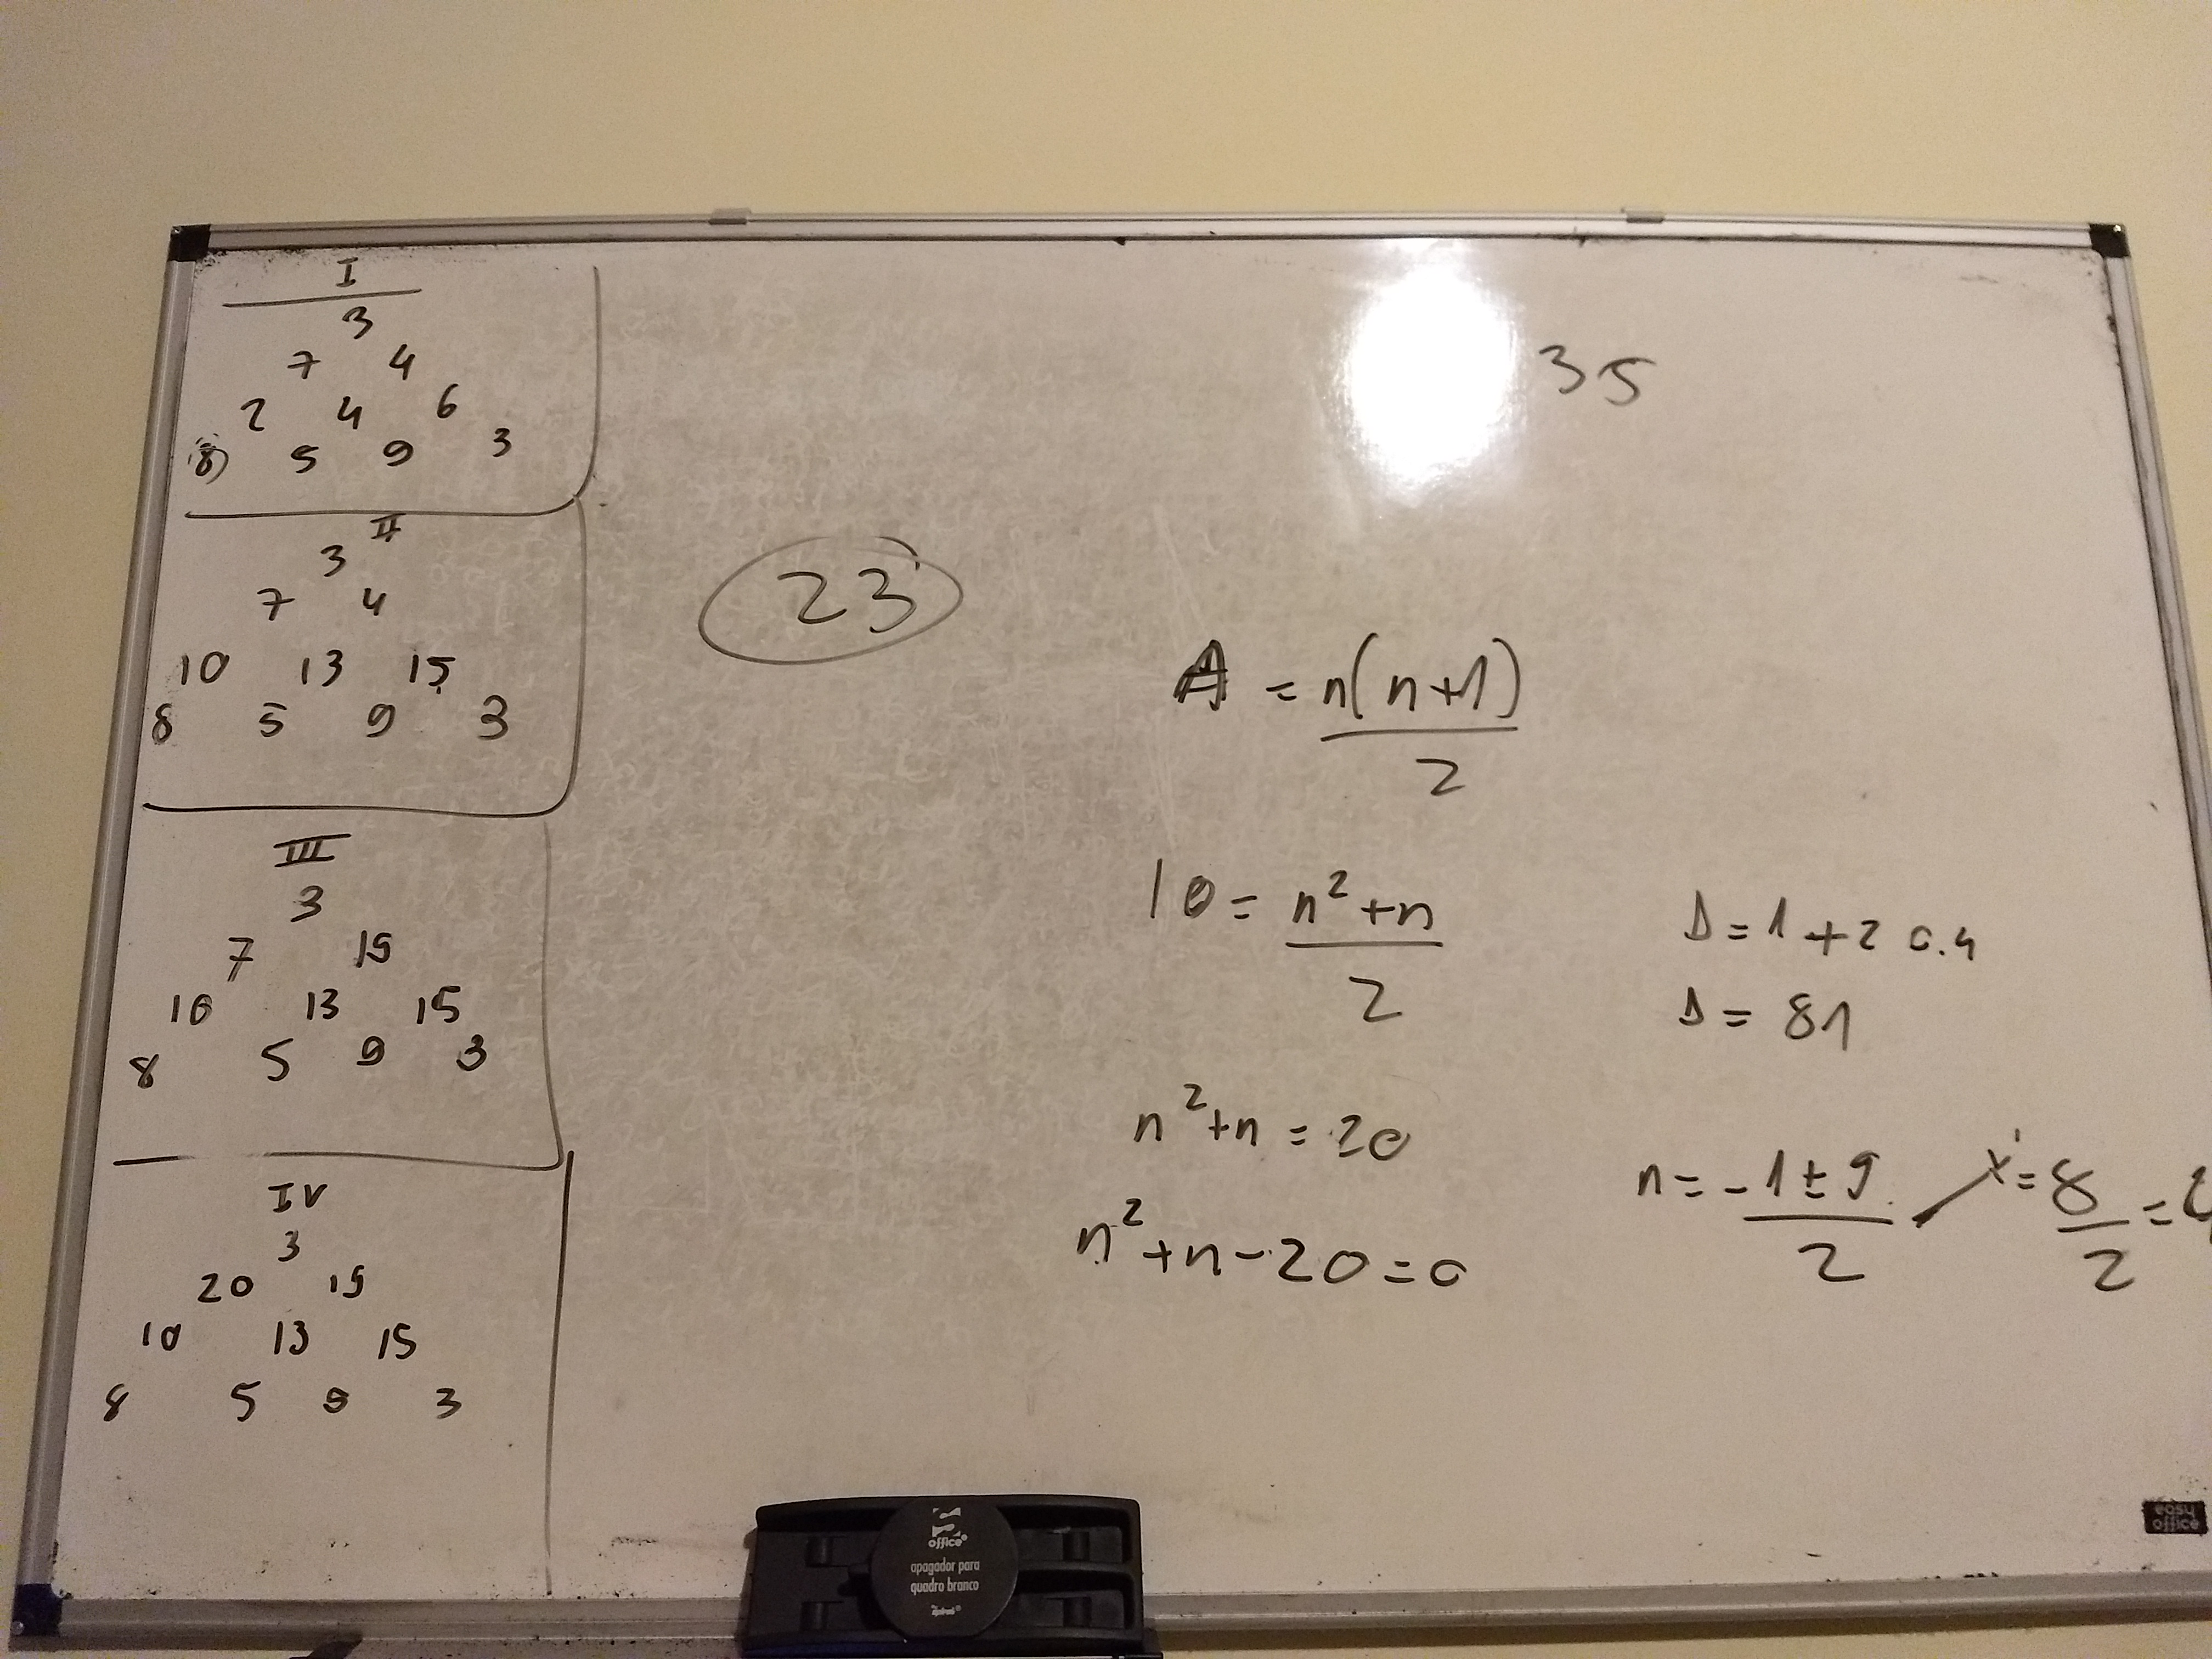 I
3
7 4
2 4 6
8 5 9 3
II
3
7 4
10 13 15
8 5 9 3
III
3
7 19
10 13 15
8 5 9 3
IV
3
20 19
10 13 15
8 5 9 3
23
35
A = n(n+1)
2
10 = n² + n
2
n² + n = 20
n² + n - 20 = 0
Δ = 1 + 20.4
Δ = 81
n = -1 ± 9
2
x' = 8
2
=
office®
apagador para
quadro branco
easy
office